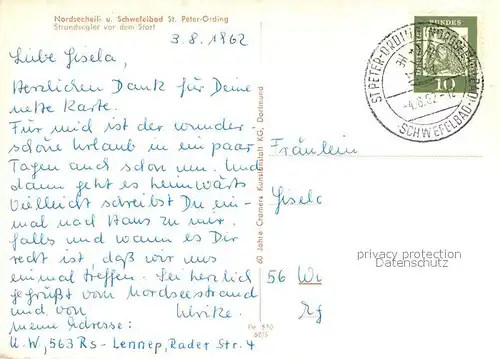 Nordseeheil- u. Schwefelbad St. Peter-Ording
Strandsegler vor dem Start
3.8.1962
Liebe Gisela,
Herzlichen Dank für Deine
nette Karte.
Für mich ist der wunder-
schöne Urlaub in ein paar
Tagen auch schon um. Und
dann geht es heimwärts
Vielleicht schreibst Du ein-
mal nach Haus zu mir,
falls und wann es Dir
recht ist, daß wir uns
einmal treffen. Sei herzlich
gegrüßt vom Nordseestrand
und von Ulrike.
meine Adresse:
U.W, 563 RS-Lennep, Rader Str. 4
60 Jahre Cramers Kunstanstalt KG, Dortmund
Pe 810
BUNDES
10
ST PETER-ORDING
-4.8.62-12
SCHWEFELBAD
Fräulein
Gisela
privacy protection
Datenschutz
56 Wu